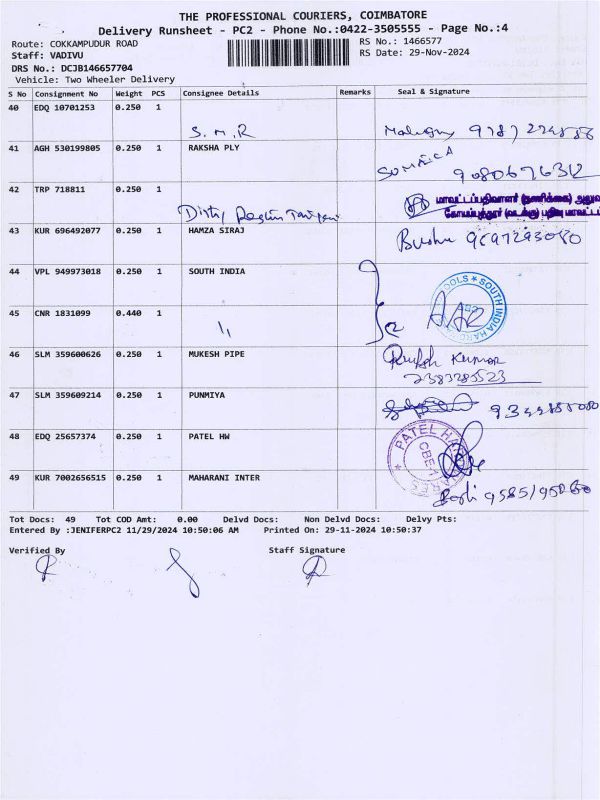 THE PROFESSIONAL COURIERS, COIMBATORE
Delivery Runsheet - PC2 - Phone No.:0422-3505555 - Page No.:4
Route: COKKAMPUDUR ROAD
RS No.: 1466577
Staff: VADIVU
RS Date: 29-Nov-2024
DRS No.: DCJB146657704
Vehicle: Two Wheeler Delivery
S No Consignment No Weight PCS Consignee Details Remarks Seal & Signature
40 EDQ 10701253 0.250 1
S.M.R
41 AGH 530199805 0.250 1 RAKSHA PLY
9080676312
42 TRP 718811 0.250 1
மாவட்டப்பதிவாளர் (தணிக்கை) அலுவ
கோயம்புத்தூர் (வடக்கு) பதிவு மாவட்ட
43 KUR 696492077 0.250 1 HAMZA SIRAJ
44 VPL 949973018 0.250 1 SOUTH INDIA
OOLS ★ SOUTH INDIA HAR
45 CNR 1831099 0.440 1
46 SLM 359600626 0.250 1 MUKESH PIPE
Kumar
47 SLM 359609214 0.250 1 PUNMIYA
48 EDQ 25657374 0.250 1 PATEL HW
PATEL HA
CBE-1
49 KUR 7002656515 0.250 1 MAHARANI INTER
Tot Docs: 49 Tot COD Amt: 0.00 Delvd Docs: Non Delvd Docs: Delvy Pts:
Entered By :JENIFERPC2 11/29/2024 10:50:06 AM Printed On: 29-11-2024 10:50:37
Verified By
Staff Signature